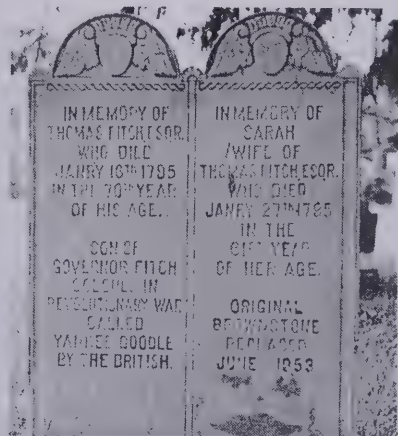 IN MEMORY OF
THOMAS FITCH, ESQR.
WHO DIED
JANRY 16TH 1795
IN THE 70TH YEAR
OF HIS AGE.
SON OF
GOVERNOR FITCH
COLONEL IN
REVOLUTIONARY WAR
CALLED
YANKEE DOODLE
BY THE BRITISH.
IN MEMORY OF
SARAH
WIFE OF
THOMAS FITCH, ESQR.
WHO DIED
JANRY 27TH 1795
IN THE
YEAR
OF HER AGE.
ORIGINAL
BROWNSTONE
REPLACED
JUNE 1953